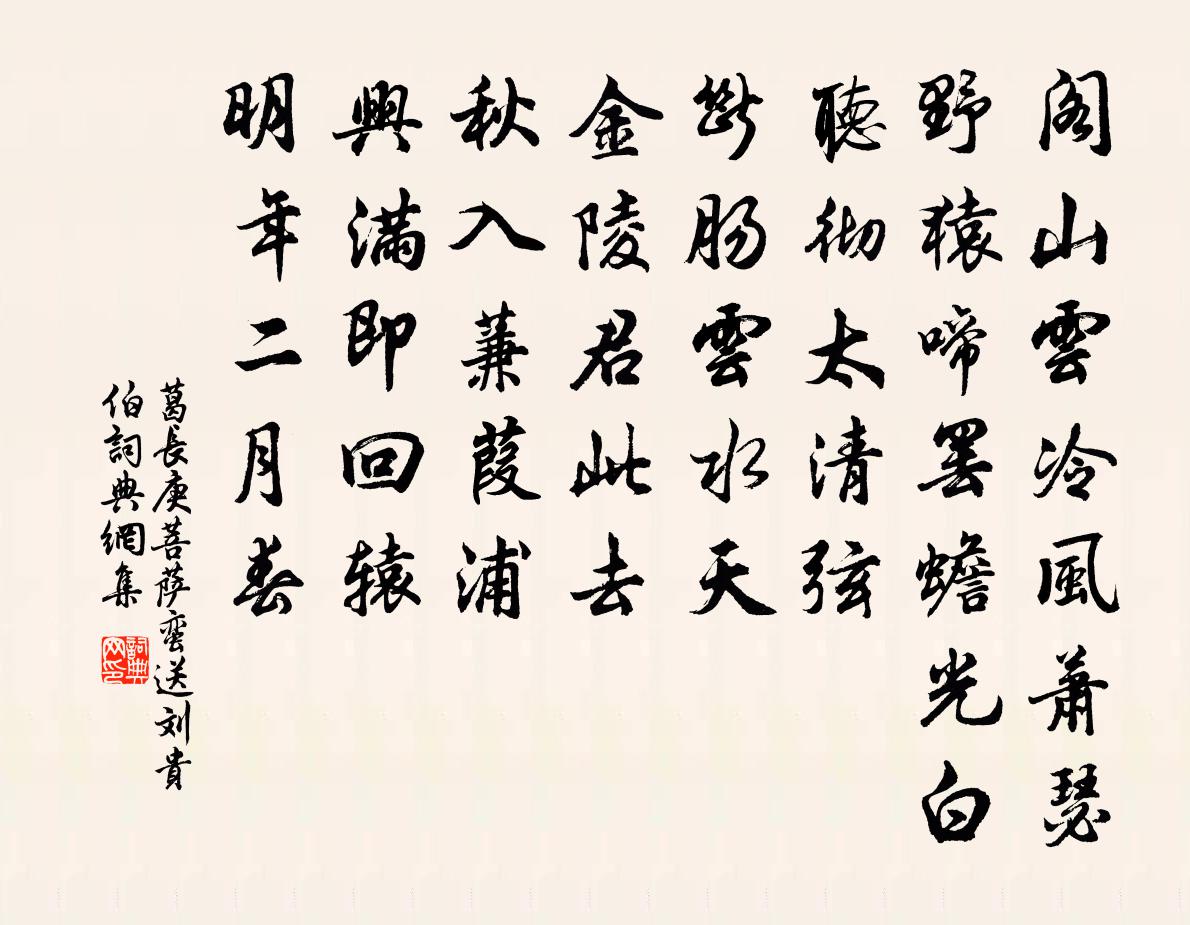 阁山雲冷風萧瑟
野猿啼罢蟾光白
聽彻太清弦
断肠雲水天
金陵君此去
秋入蒹葭浦
興满即回辕
明年二月春
葛長庚菩萨蛮送刘貴
伯詞典網集
詞典
网印